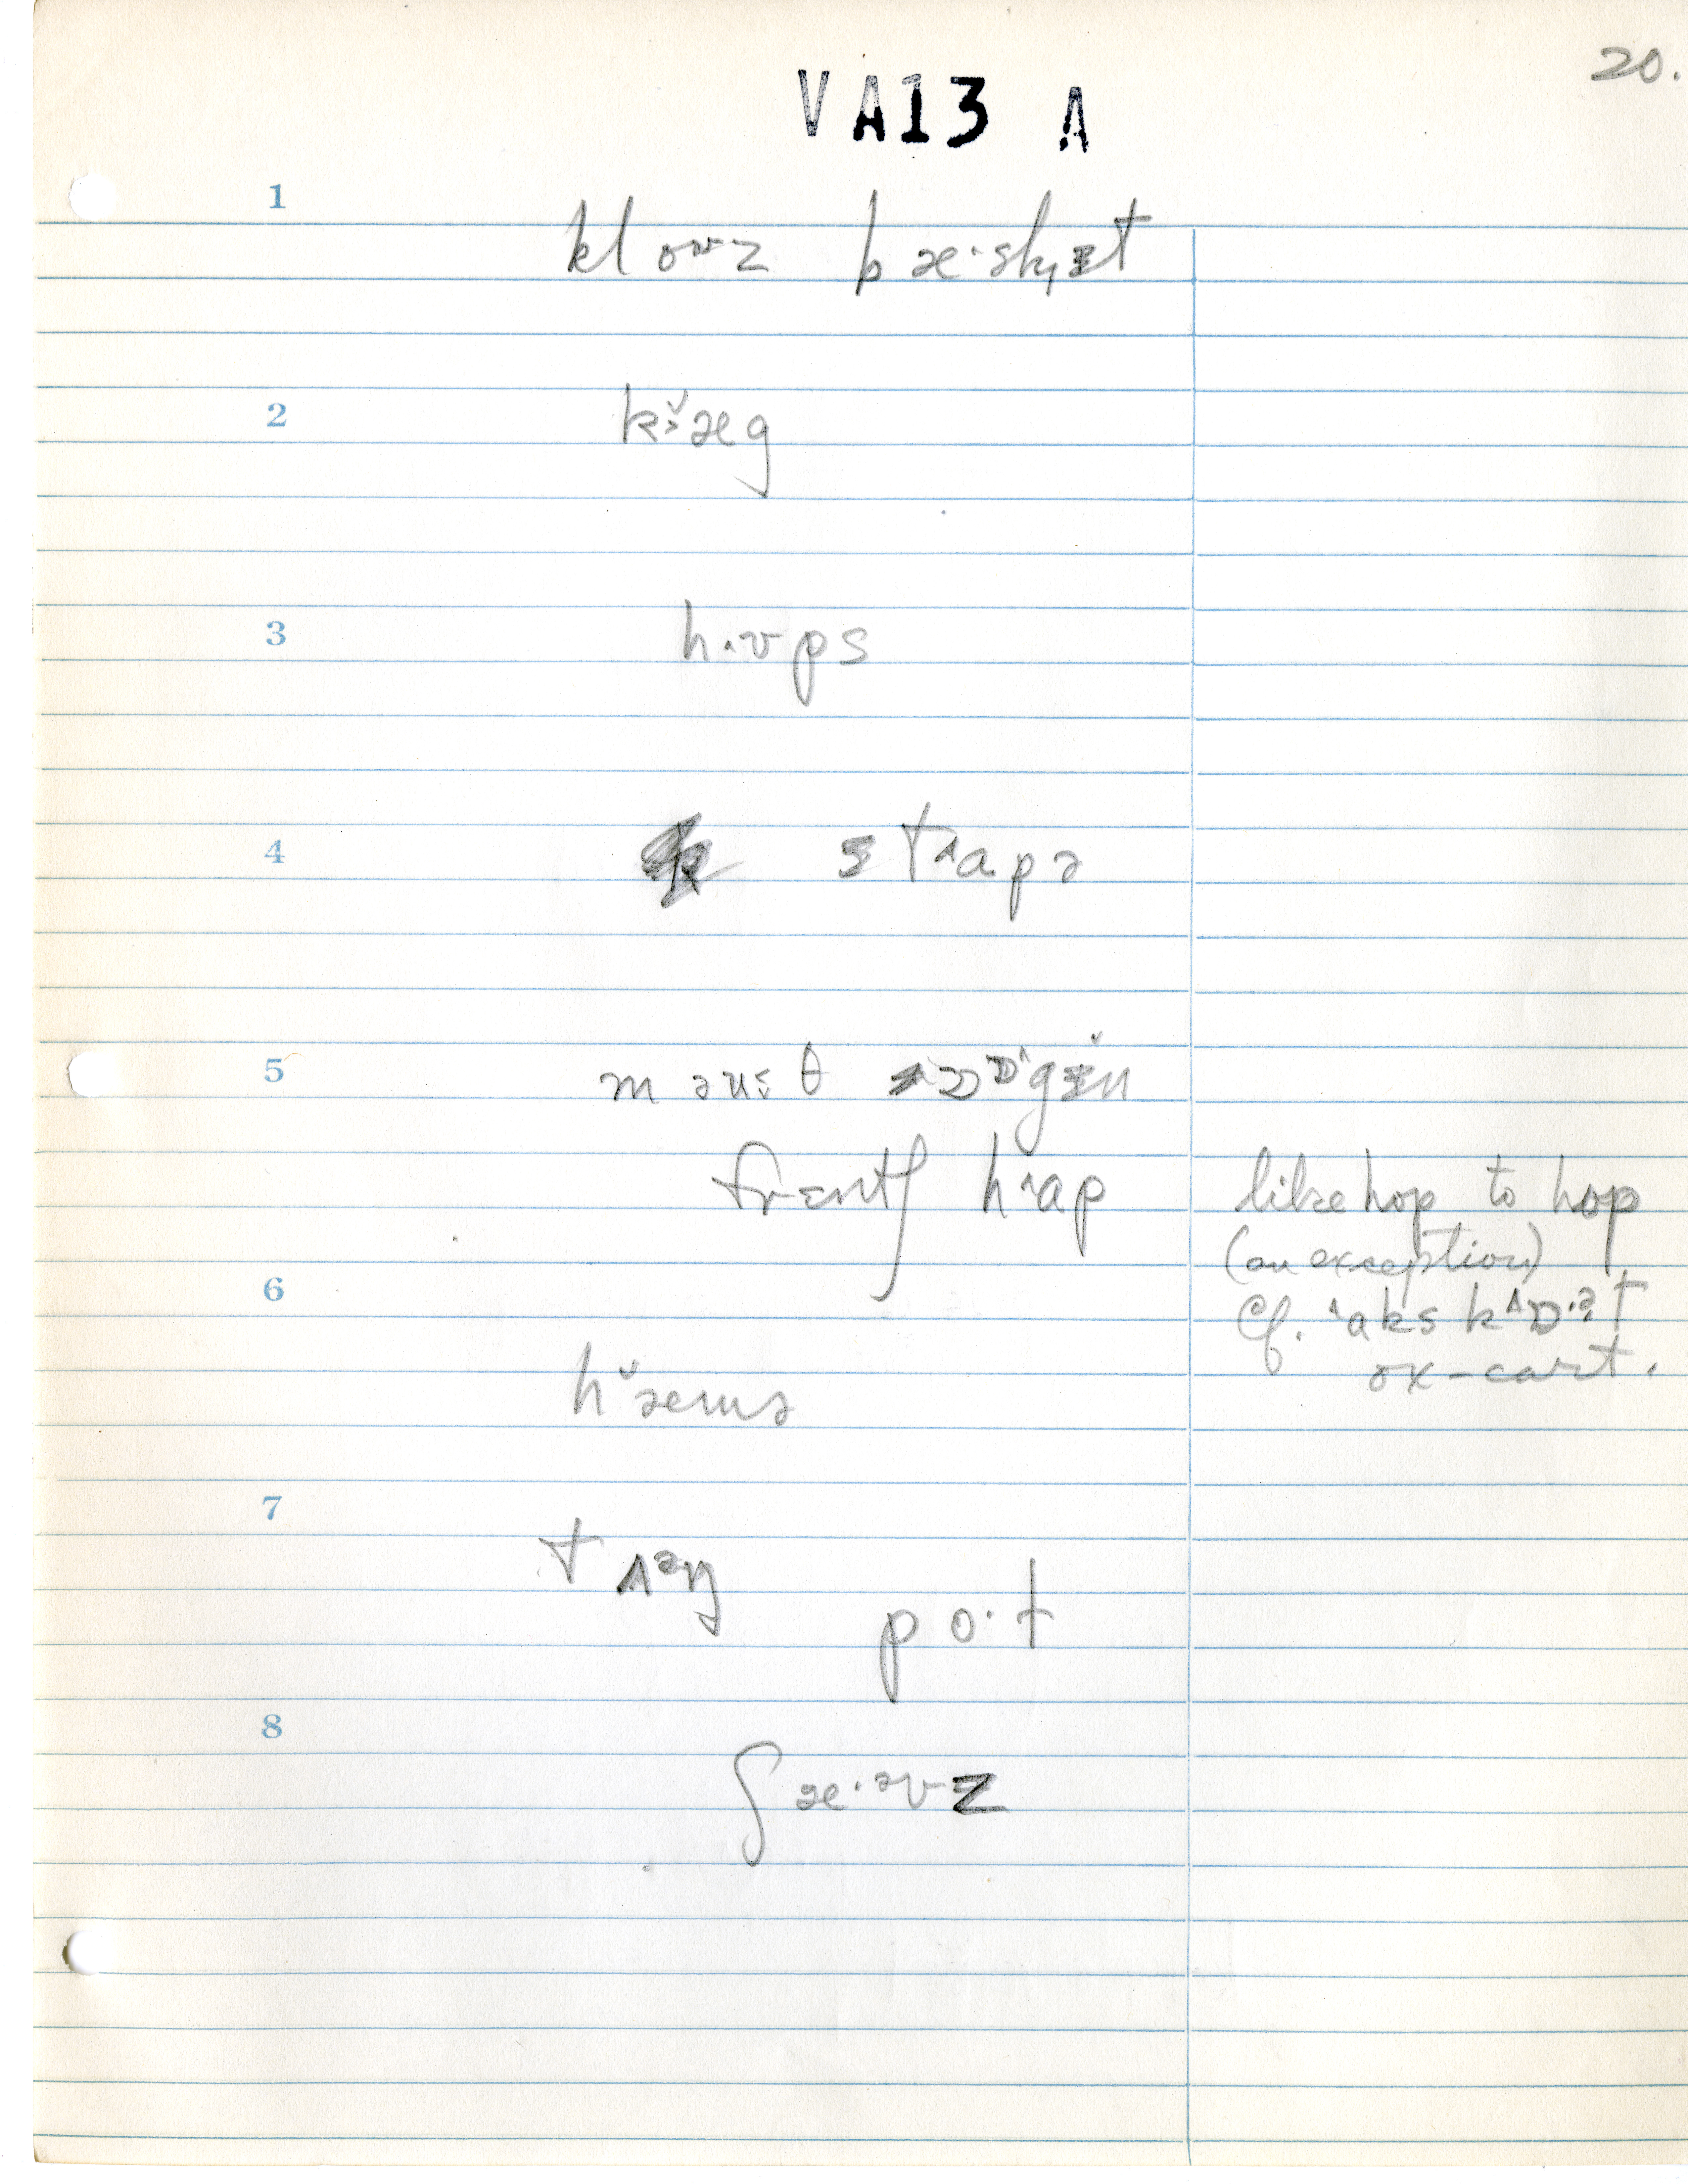 20.
VA13 A
1
kloᴜz bæ·skɪt
2
kæ̌g
3
h·ʊps
4
stɑpə
5
mauθ ɒɒ˄gɪn
frɛntʃ hɑ˄p like hop to hop
(an exception)
6
Cf. ˄aks kɒ·ət
ox-cart.
hæ̌mə
7
tʌəŋ
po·t
8
ʃæ·əvz